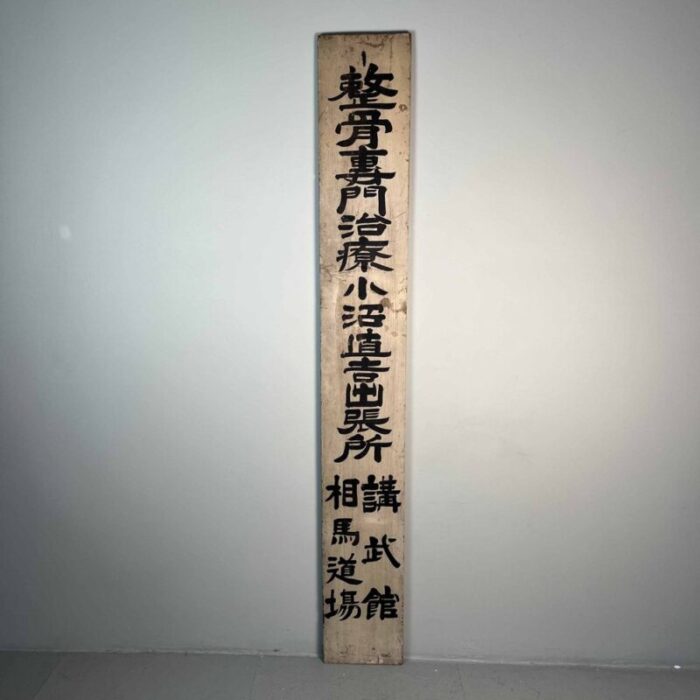 整骨專門治療小沼直吉出張所
講武館
相馬道場